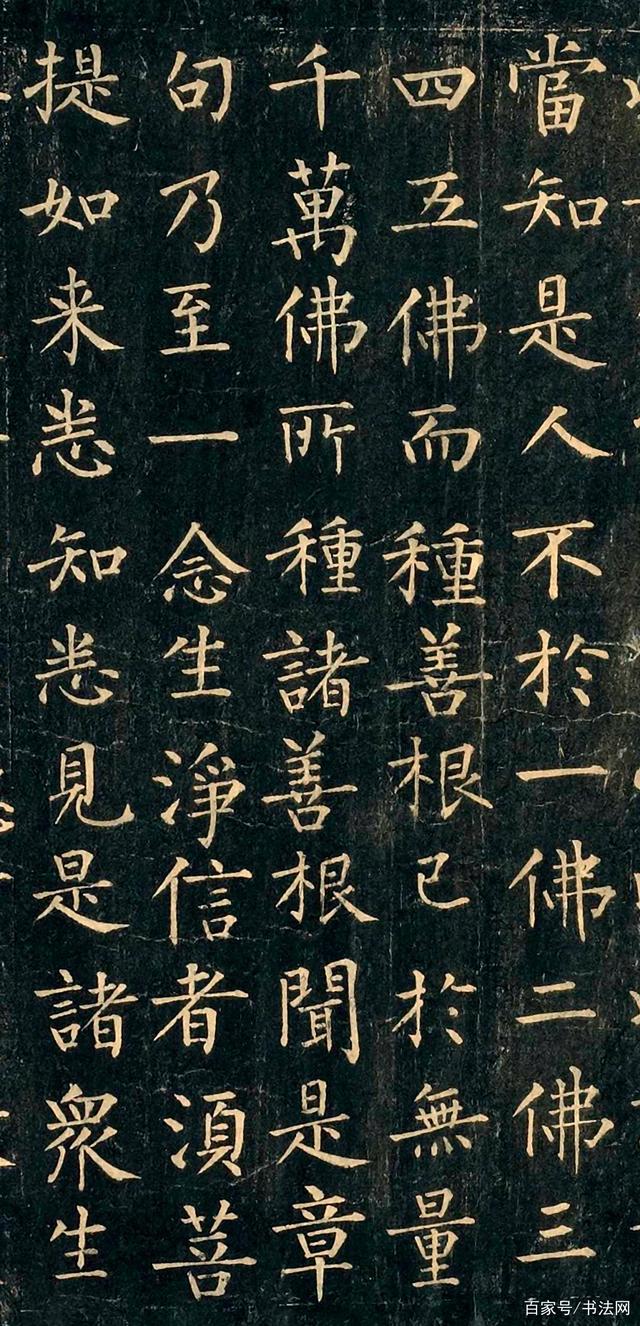 當知是人不於一佛二佛三
四五佛而種善根已於無量
千萬佛所種諸善根聞是章
句乃至一念生淨信者須菩
提如来悉知悉見是諸衆生
百家号/书法网